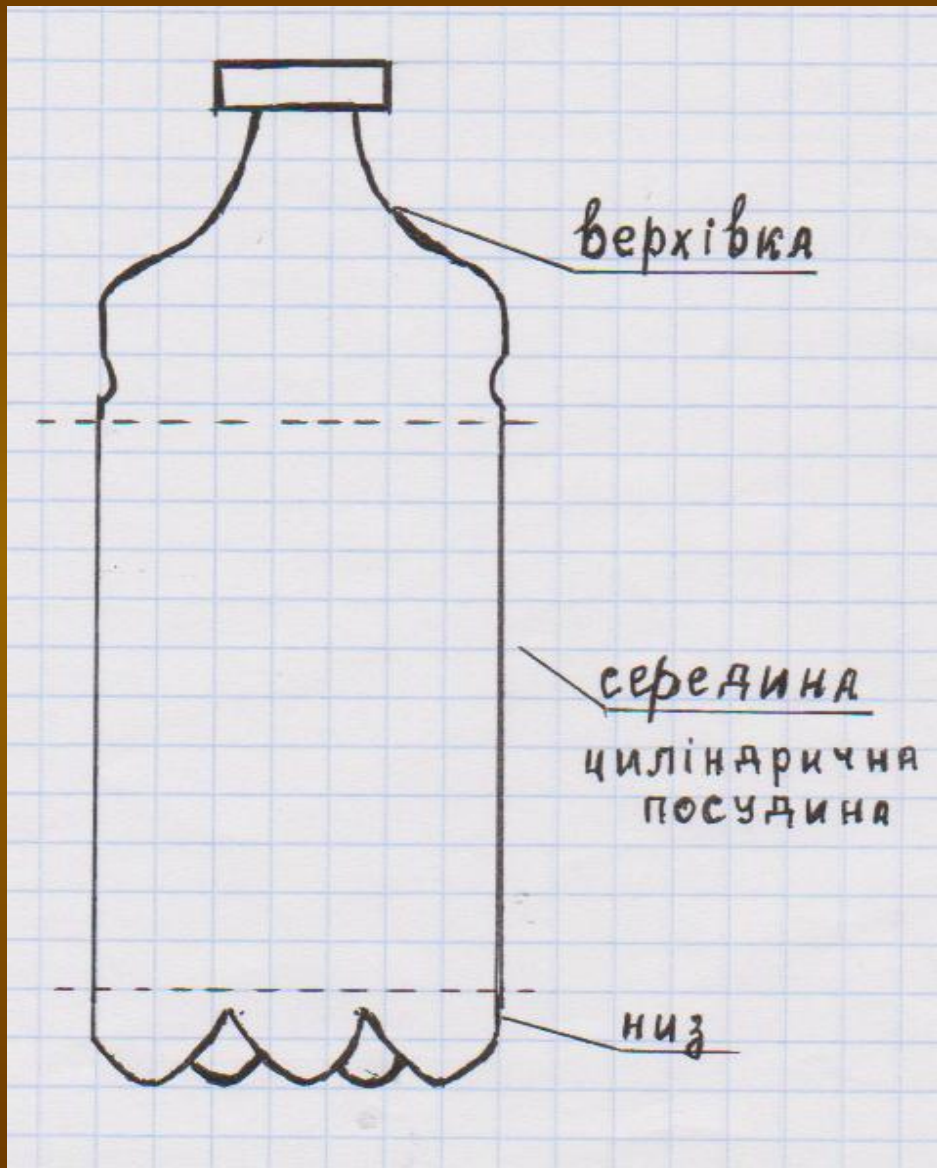 верхівка
середина
циліндрична
посудина
низ